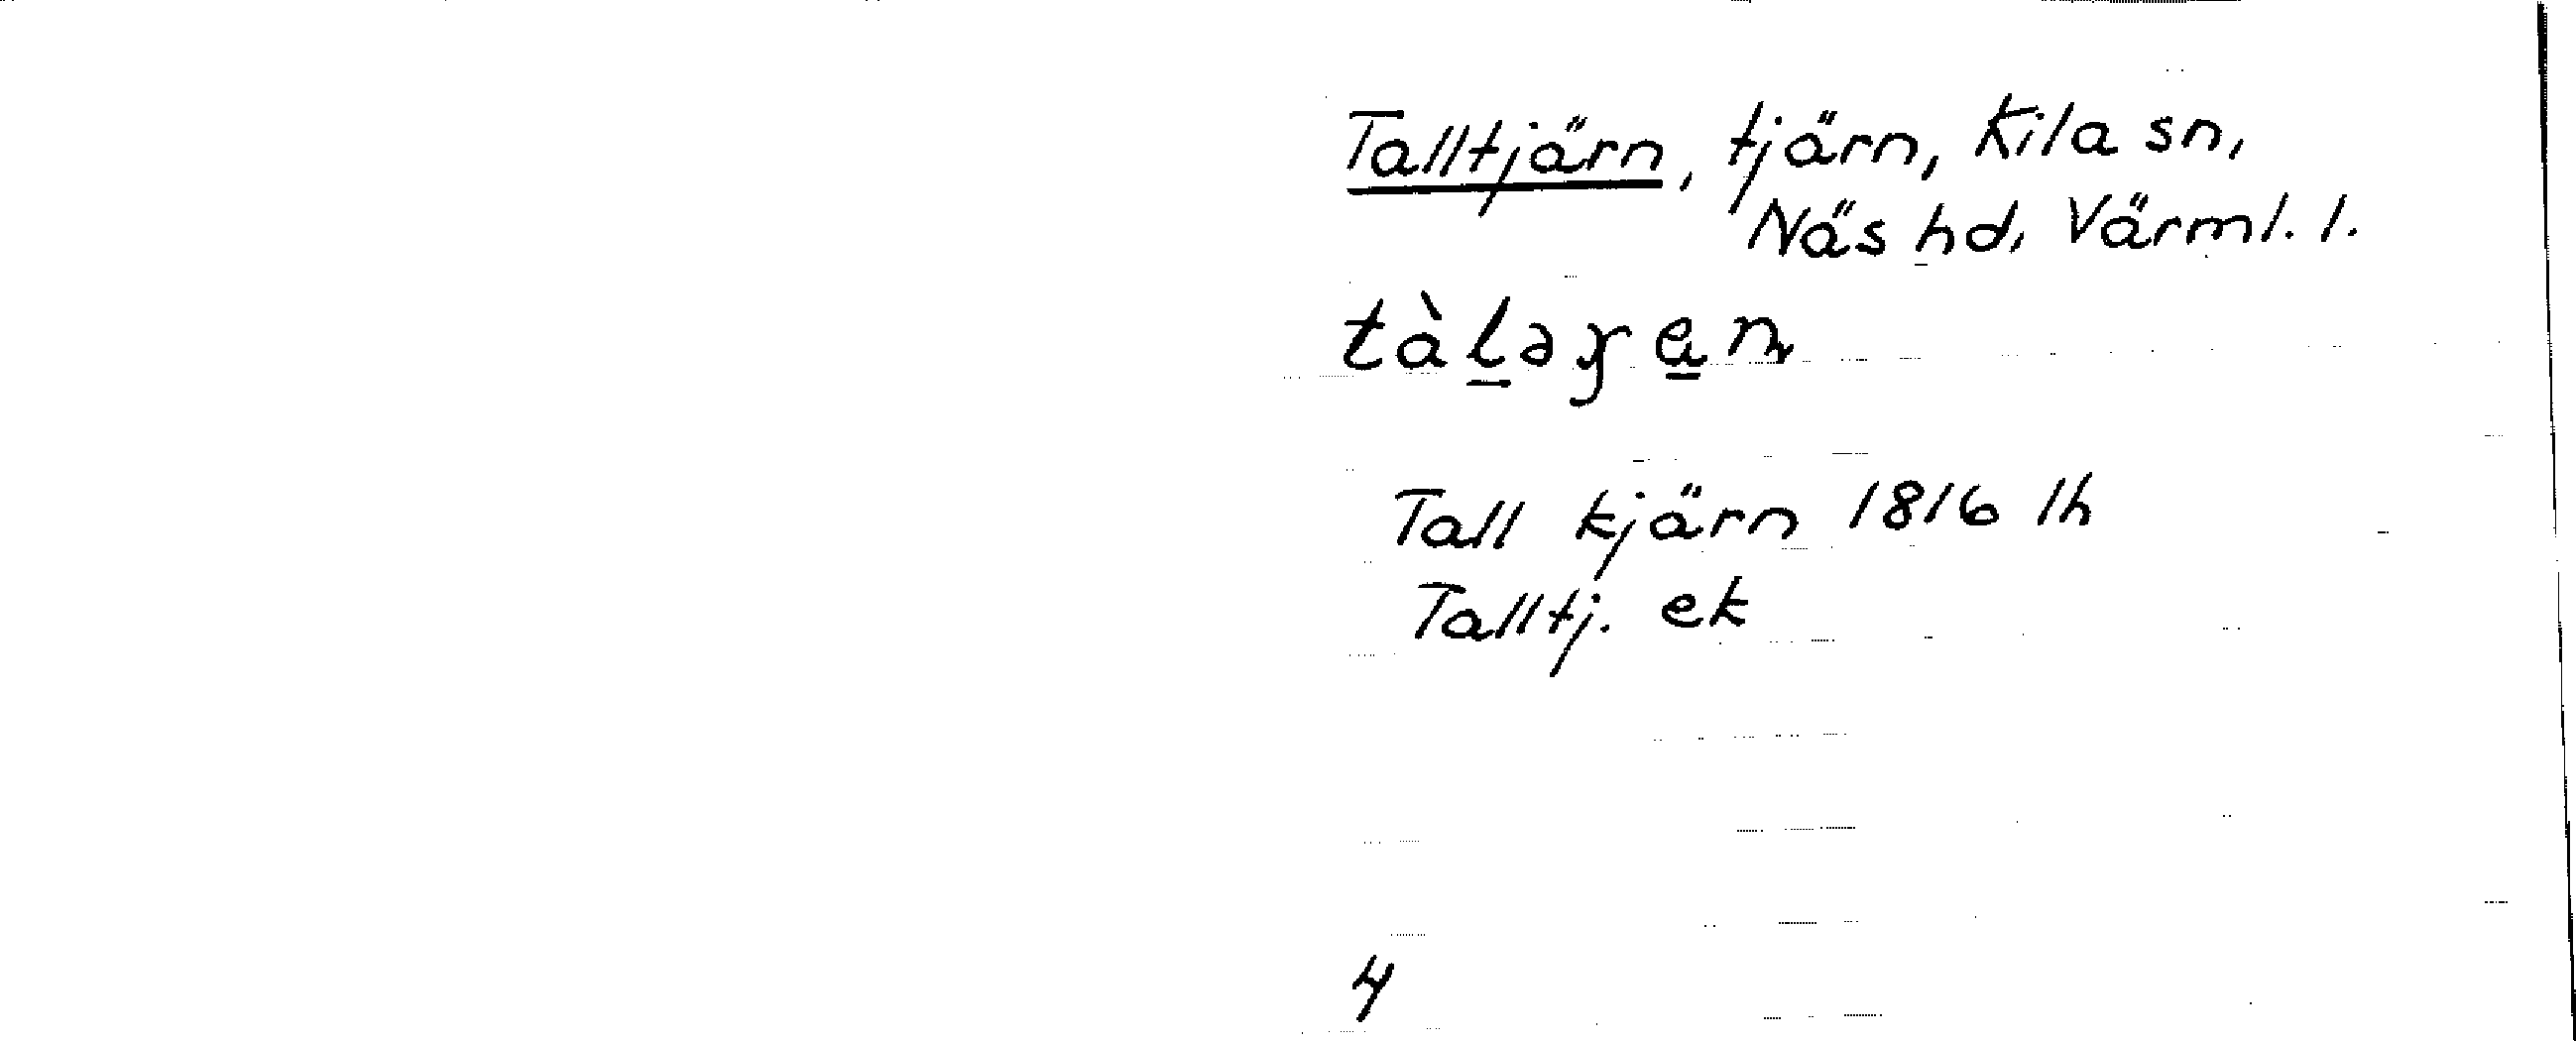 Talltjärn, tjärn, Kila sn,
Näs hd, Värml. l.
Tall kjärn 1816 lh
Talltj. ek
4